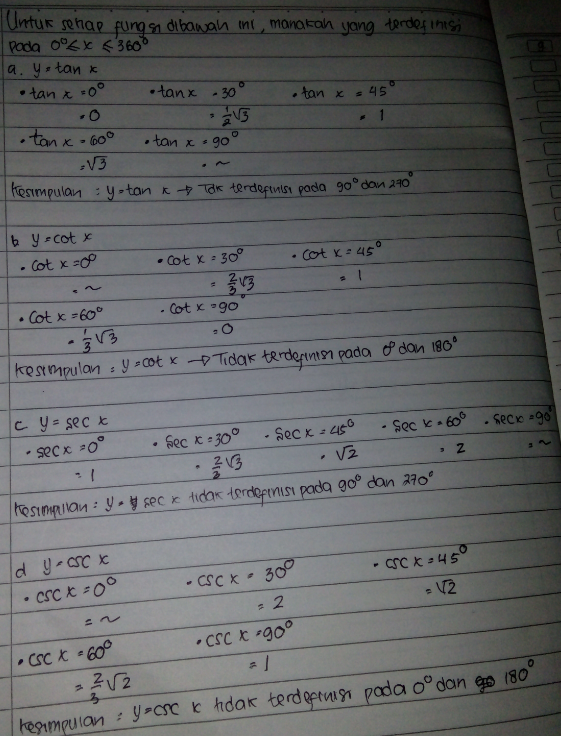 Untuk setiap fungsi dibawah ini, manakah yang terdefinisi
pada 0° ≤ x ≤ 360°
a. y = tan x
• tan x = 0° • tan x = 30° • tan x = 45°
= 0 = 1/2 √3 = 1
• tan x = 60° • tan x = 90°
= √3 = ~
Kesimpulan : y = tan x → Tdk terdefinisi pada 90° dan 270°
b y = cot x
• cot x = 0° • cot x = 30° • cot x = 45°
= ~ = 2/3 √3 = 1
• cot x = 60° • cot x = 90°
= 1/3 √3 = 0
Kesimpulan : y = cot x → Tidak terdefinisi pada 0° dan 180°
c y = sec x
• sec x = 0° • sec x = 30° • sec x = 45° • sec x = 60° • sec x = 90°
= 1 = 2/3 √3 = √2 = 2 = ~
Kesimpulan : y = sec x tidak terdefinisi pada 90° dan 270°
d y = csc x
• csc x = 0° • csc x = 30° • csc x = 45°
= ~ = 2 = √2
• csc x = 60° • csc x = 90°
= 2/3 √2 = 1
Kesimpulan : y = csc x tidak terdefinisi pada 0° dan 180°